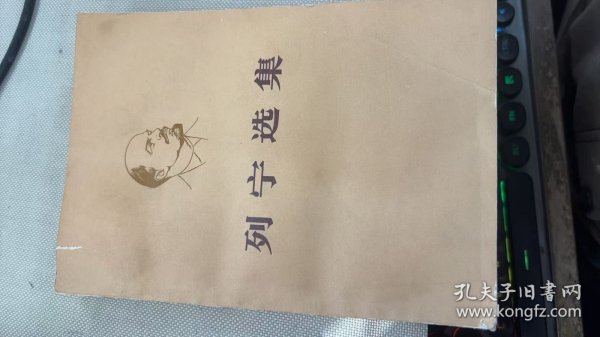 列宁选集
孔夫子旧書网
www.kongfz.com